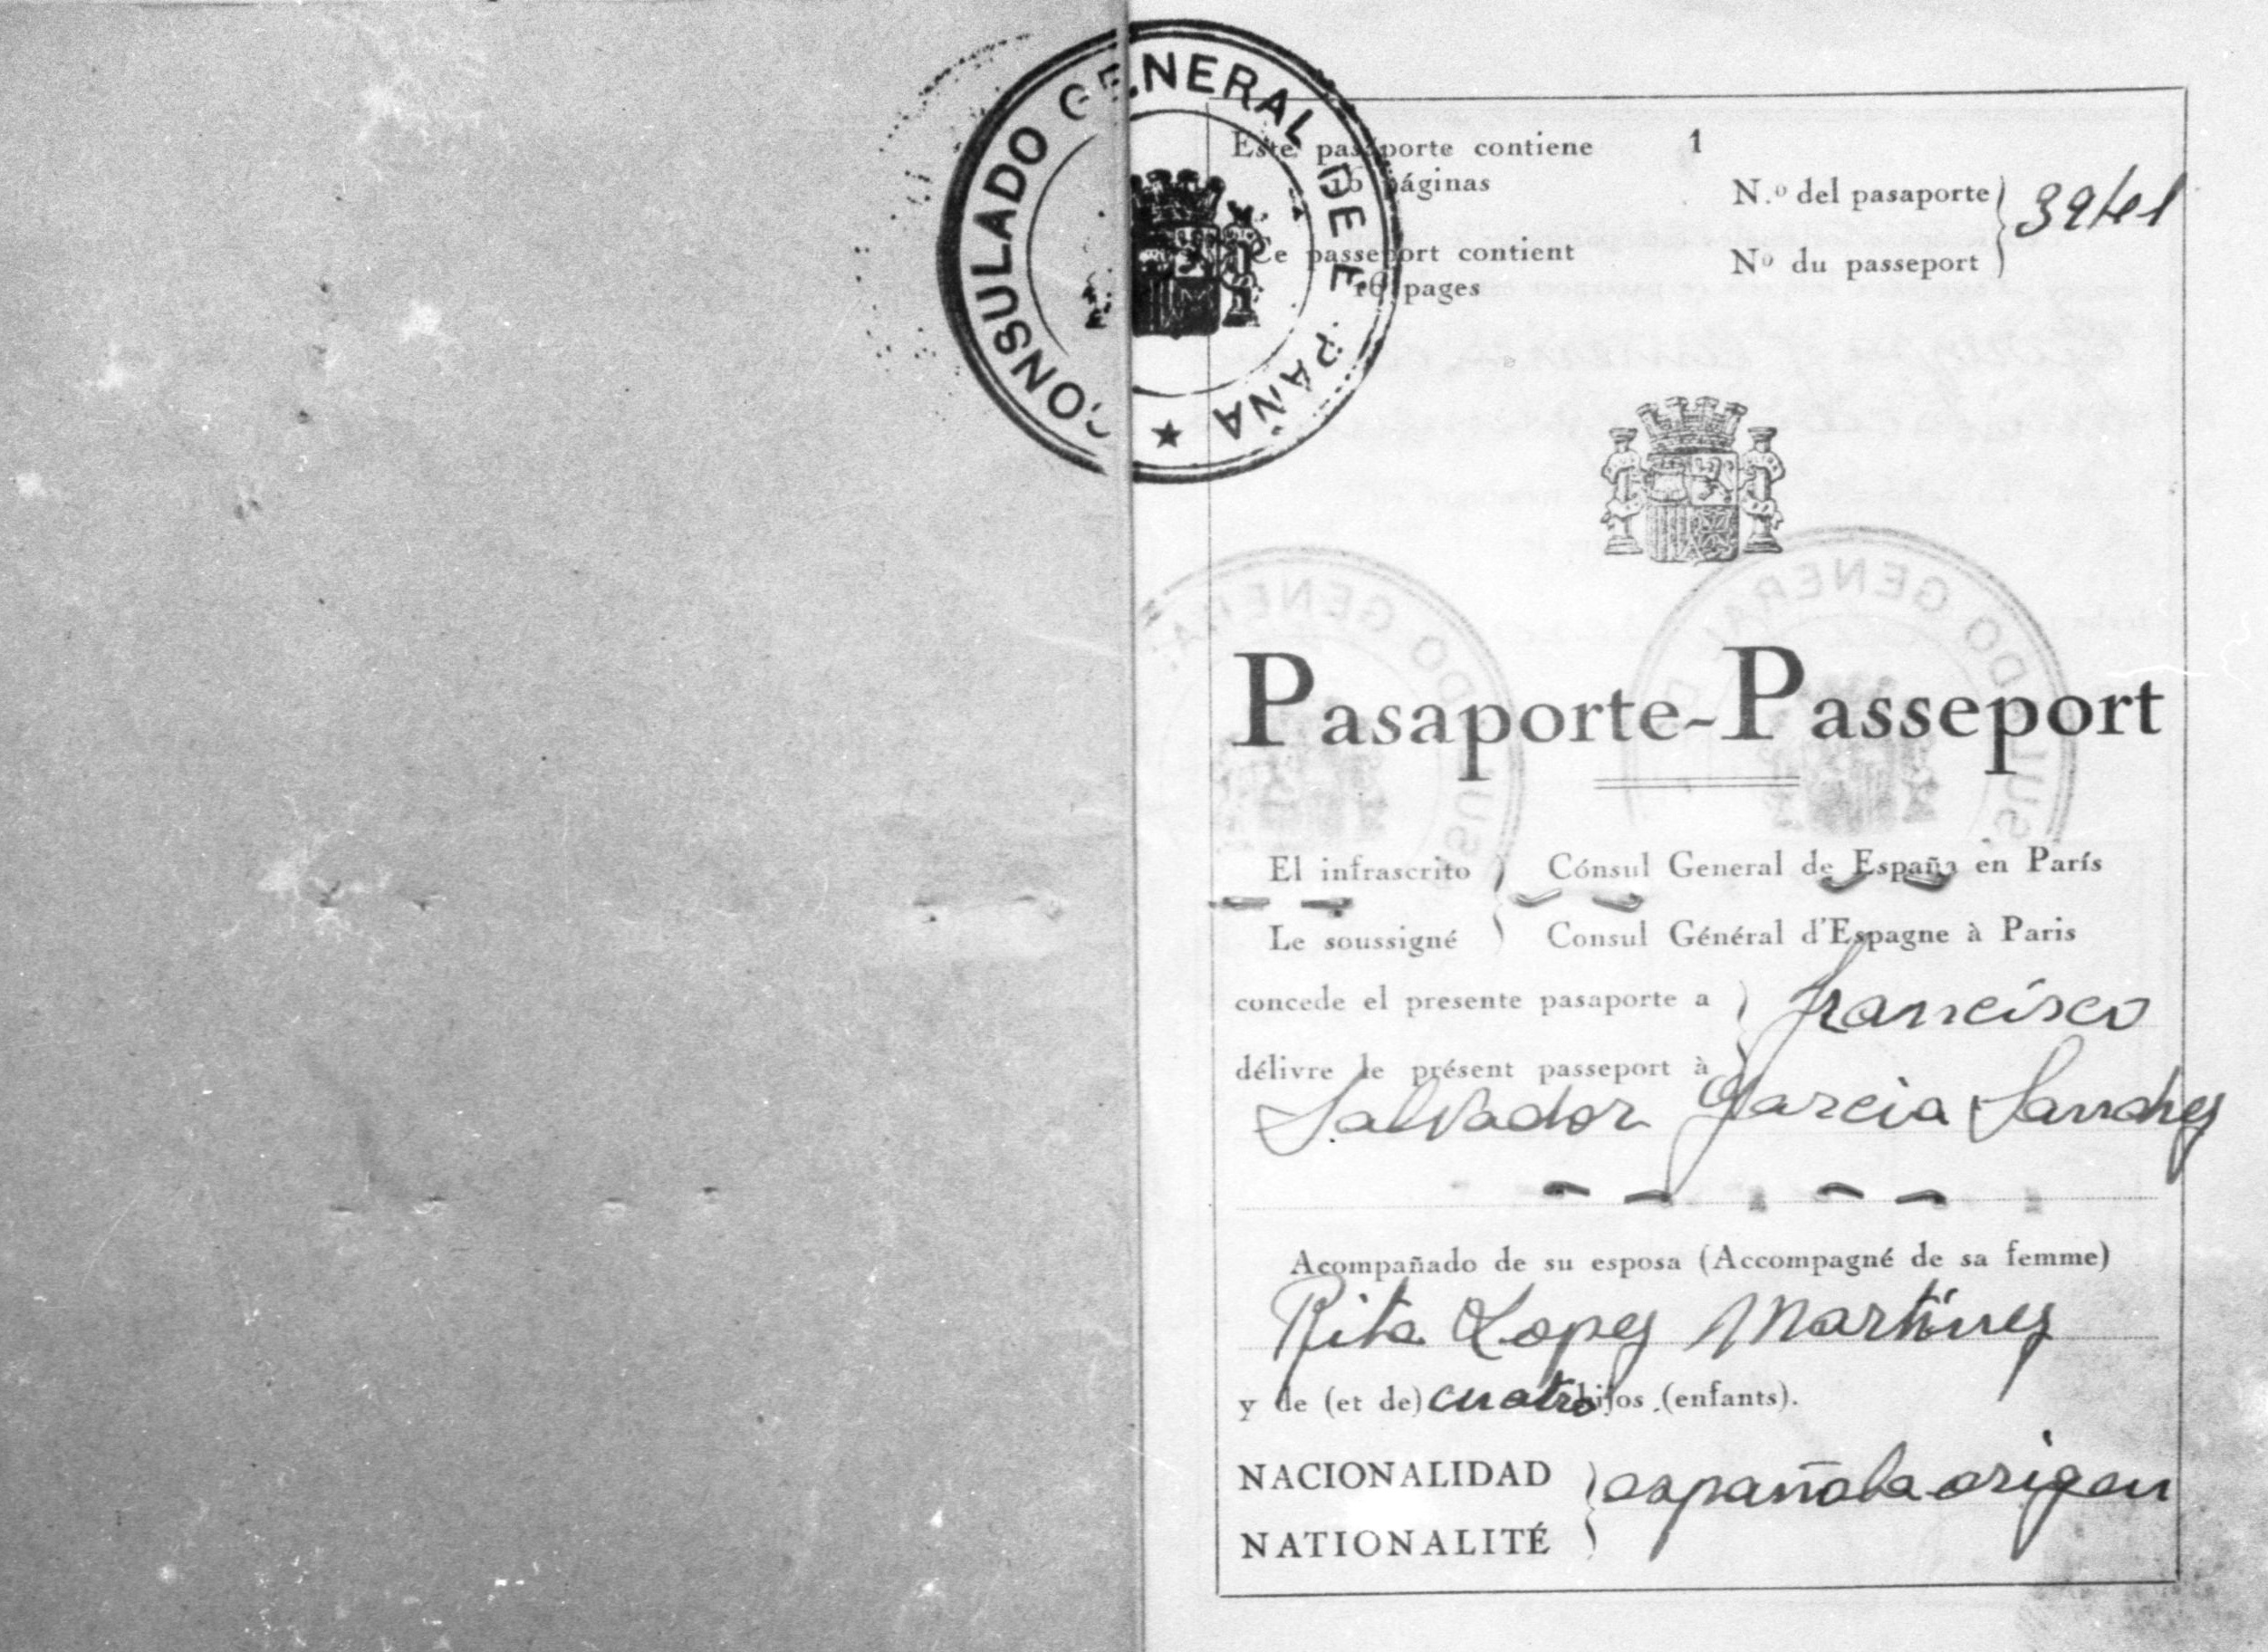 CONSULADO GENERAL DE ESPAÑA
Este pasaporte contiene
16 páginas
1
N.º del pasaporte
Ce passeport contient
16 pages
Nº du passeport
Pasaporte-Passeport
El infrascrito } Cónsul General de España en París
Le soussigné } Consul Général d'Espagne à Paris
concede el presente pasaporte a } Francisco
délivre le présent passeport à
Salvador Garcia Sanchez
Acompañado de su esposa (Accompagné de sa femme)
Rita Lopez Martinez
y de (et de) cuatro hijos (enfants).
NACIONALIDAD } española origen
NATIONALITÉ